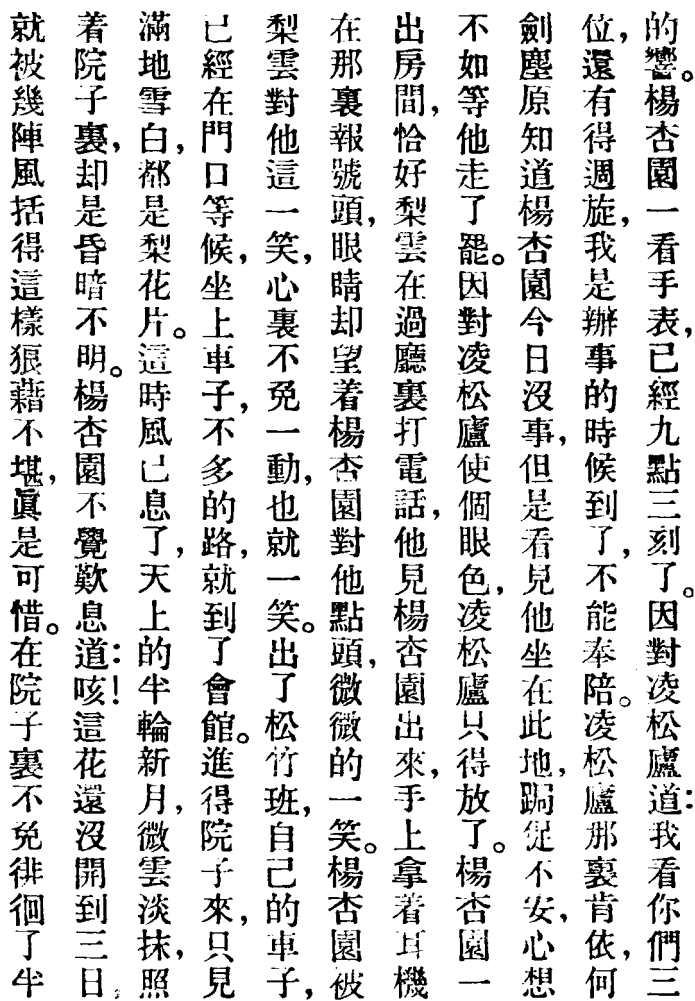 的響。楊杏園一看手表，已經九點三刻了。因對凌松廬道：我看你們三
位，還有得週旋，我是辦事的時候到了，不能奉陪。凌松廬那裏肯依，何
劍塵原知道楊杏園今日沒事，但是看見他坐在此地，跼促不安，心想
不如等他走了罷。因對凌松廬使個眼色，凌松廬只得放了。楊杏園一
出房間，恰好梨雲在過廳裏打電話，他見楊杏園出來，手上拿着耳機
在那裏報號頭，眼睛却望着楊杏園對他點頭，微微的一笑。楊杏園被
梨雲對他這一笑，心裏不免一動，也就一笑。出了松竹班，自己的車子，
已經在門口等候，坐上車子，不多的路，就到了會館。進得院子來，只見
滿地雪白，都是梨花片。這時風已息了，天上的半輪新月，微雲淡抹，照
着院子裏，却是昏暗不明。楊杏園不覺歎息道：咳！這花還沒開到三日，
就被幾陣風括得這樣狠藉不堪，眞是可惜。在院子裏不免徘徊了半